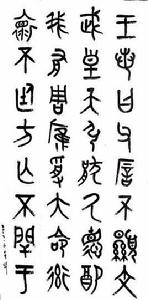 王若曰父不顯文
武皇天引猒氒德配
我有周膺受大命率
褱不廷方亡不閈于